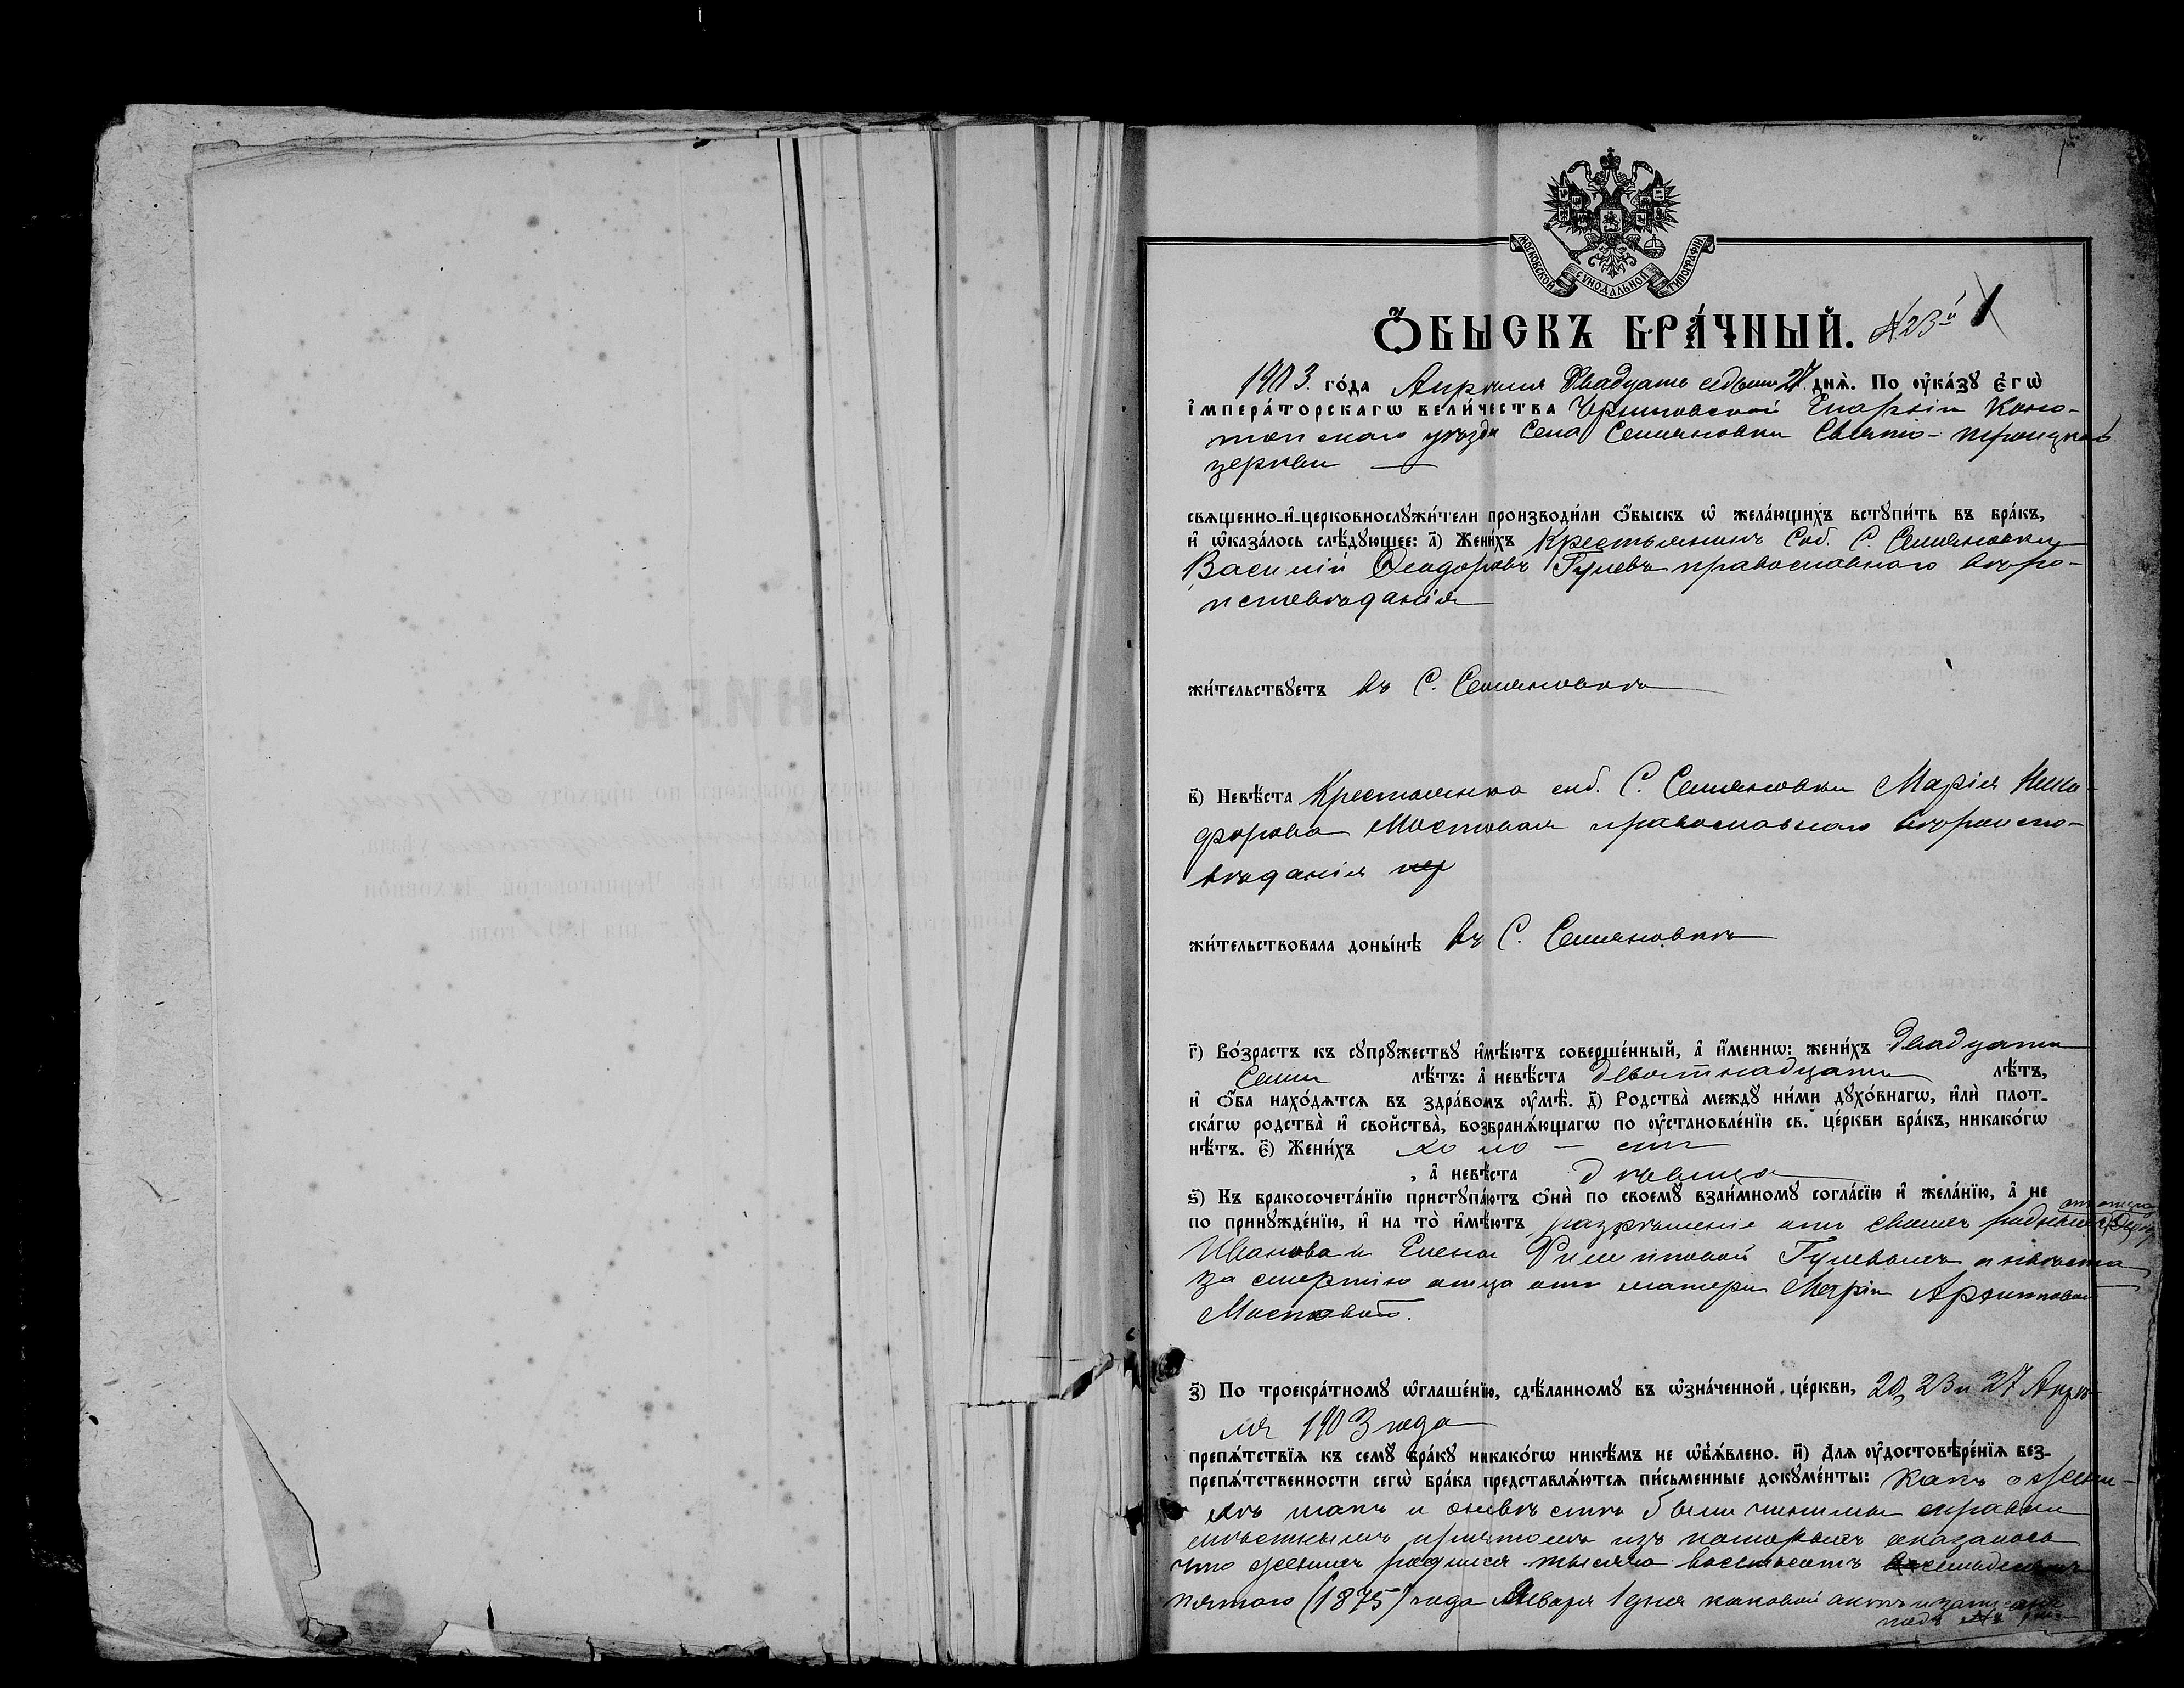 МОСКОВСКОЙ СУНОДАЛЬНОЙ ТИПОГРАФІИ
Ѻ҆́БЫСКЪ БРА́ЧНЫЙ. №23й 1
1903. го́да Апрѣля Двадцать седьмаго 27 днѧ̀. По ᲂу҆ка́зꙋ є҆гѡ̀
і҆мпера́торскагѡ вели́чества Черниговской Епархіи Коно-
топскаго уѣзда Села Семяновки Свято-Троицкой
церкви —
свѧщенно-и҆-церковнослꙋжи́тели производи́ли ѻ҆́быскъ ѡ҆ жела́ющихъ встꙋпи́ть въ бра́къ,
и҆ ѡ҆каза́лось слѣ́дꙋющее: а҃) Жени́хъ Крестьянинъ Соб. С. Семяновки
Василій Ѳеодоровъ Гулевъ православнаго вѣро-
исповѣданія
жи́тельствꙋетъ въ С. Семяновкѣ
в҃) Невѣ́ста Крестьянка соб. С. Семяновки Марія Ники-
форова Мостовая православнаго вѣроиспо-
вѣданія
жи́тельствовала доны́нѣ въ С. Семяновкѣ
г҃) Во́зрастъ къ сꙋпрꙋ́жествꙋ и҆мѣ́ютъ соверше́нный, а҆ и҆́меннѡ: жени́хъ Двадцати
Семи лѣ́тъ: а҆ невѣ́ста девятнадцати лѣ́тъ,
и҆ ѻ҆́ба нахо́дѧтсѧ въ здра́вомъ ᲂу҆мѣ̀. д҃) Родства̀ междꙋ̀ ни́ми дꙋхо́внагѡ, и҆лѝ плот-
ска́гѡ родства̀ и҆ сво́йства̀, возбранѧ́ющагѡ по ᲂу҆становле́нїю св. це́ркви бра́къ, никако́гѡ
нѣ́тъ. є҃) Жени́хъ холо — стъ
, а҆ невѣ́ста дѣвица
ѕ҃) Къ бракосочета́нїю пристꙋпа́ютъ ѻ҆нѝ по своемꙋ̀ взаи́мномꙋ согла́сїю и҆ жела́нїю, а҆ не
по принꙋжде́нїю, и҆ на то̀ и҆мѣ́ютъ разрѣшеніе отъ своихъ родныхъ отъ отца
Иванова и Елены Филипповой Гулевыхъ а невѣста
за смертію отца отъ матери Маріи Архиповой
Мостовой.
з҃) По троекра́тномꙋ ѡ҆глаше́нїю, сдѣ́ланномꙋ въ ѡ҆зна́ченной це́ркви, 20, 23 и 27 Апрѣ-
ля 1903 года
препѧ́тствїѧ къ семꙋ̀ бра́кꙋ никако́гѡ никѣ́мъ не ѡ҆б̾ѧ́влено. и҃) Длѧ ᲂу҆достовѣре́нїѧ без-
препѧ́тственности сегѡ̀ бра́ка представлѧ́ютсѧ пи́сьменные докꙋме́нты: Какъ о жени-
хѣ такъ и о невѣстѣ были чинимы справки
мѣстнымъ причтомъ изъ которыхъ оказалось
что женихъ родился тысяча восемьсотъ семьдесятъ
пятаго (1875) года Января 1 дня каковой актъ и записанъ
подъ №